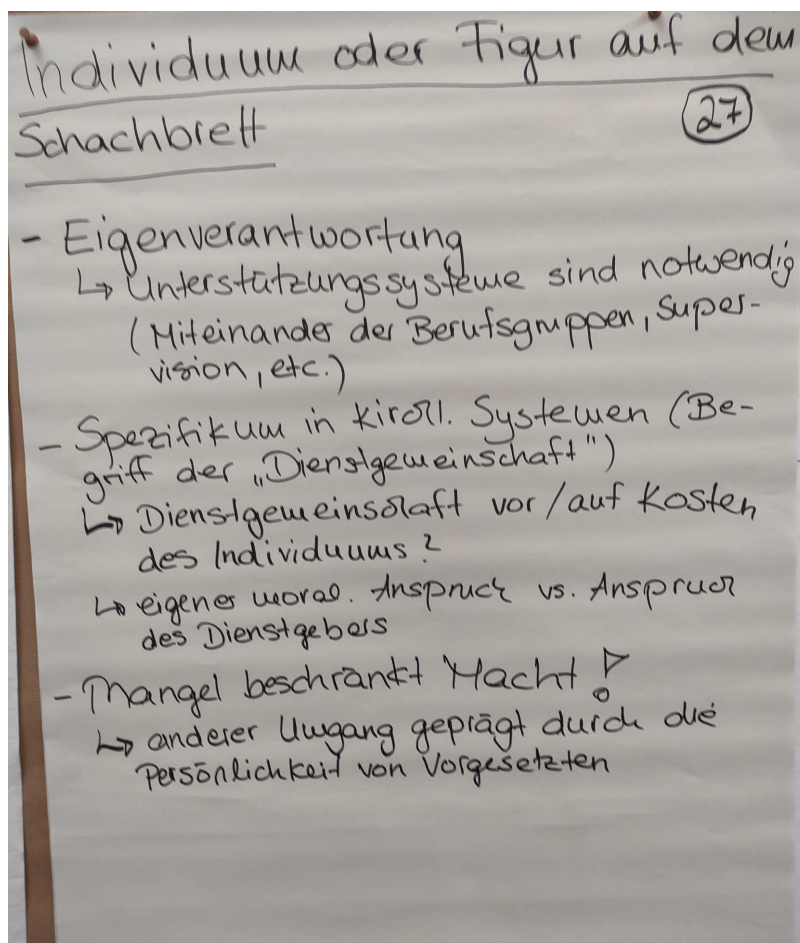 Individuum oder Figur auf dem
Schachbrett
27
- Eigenverantwortung
↳ Unterstützungssysteme sind notwendig
(Miteinander der Berufsgruppen, Super-
vision, etc.)
- Spezifikum in kirchl. Systemen (Be-
griff der „Dienstgemeinschaft")
↳ Dienstgemeinschaft vor/auf Kosten
des Individuums?
↳ eigener moral. Anspruch vs. Anspruch
des Dienstgebers
- Mangel beschränkt Macht!
↳ anderer Umgang geprägt durch die
Persönlichkeit von Vorgesetzten